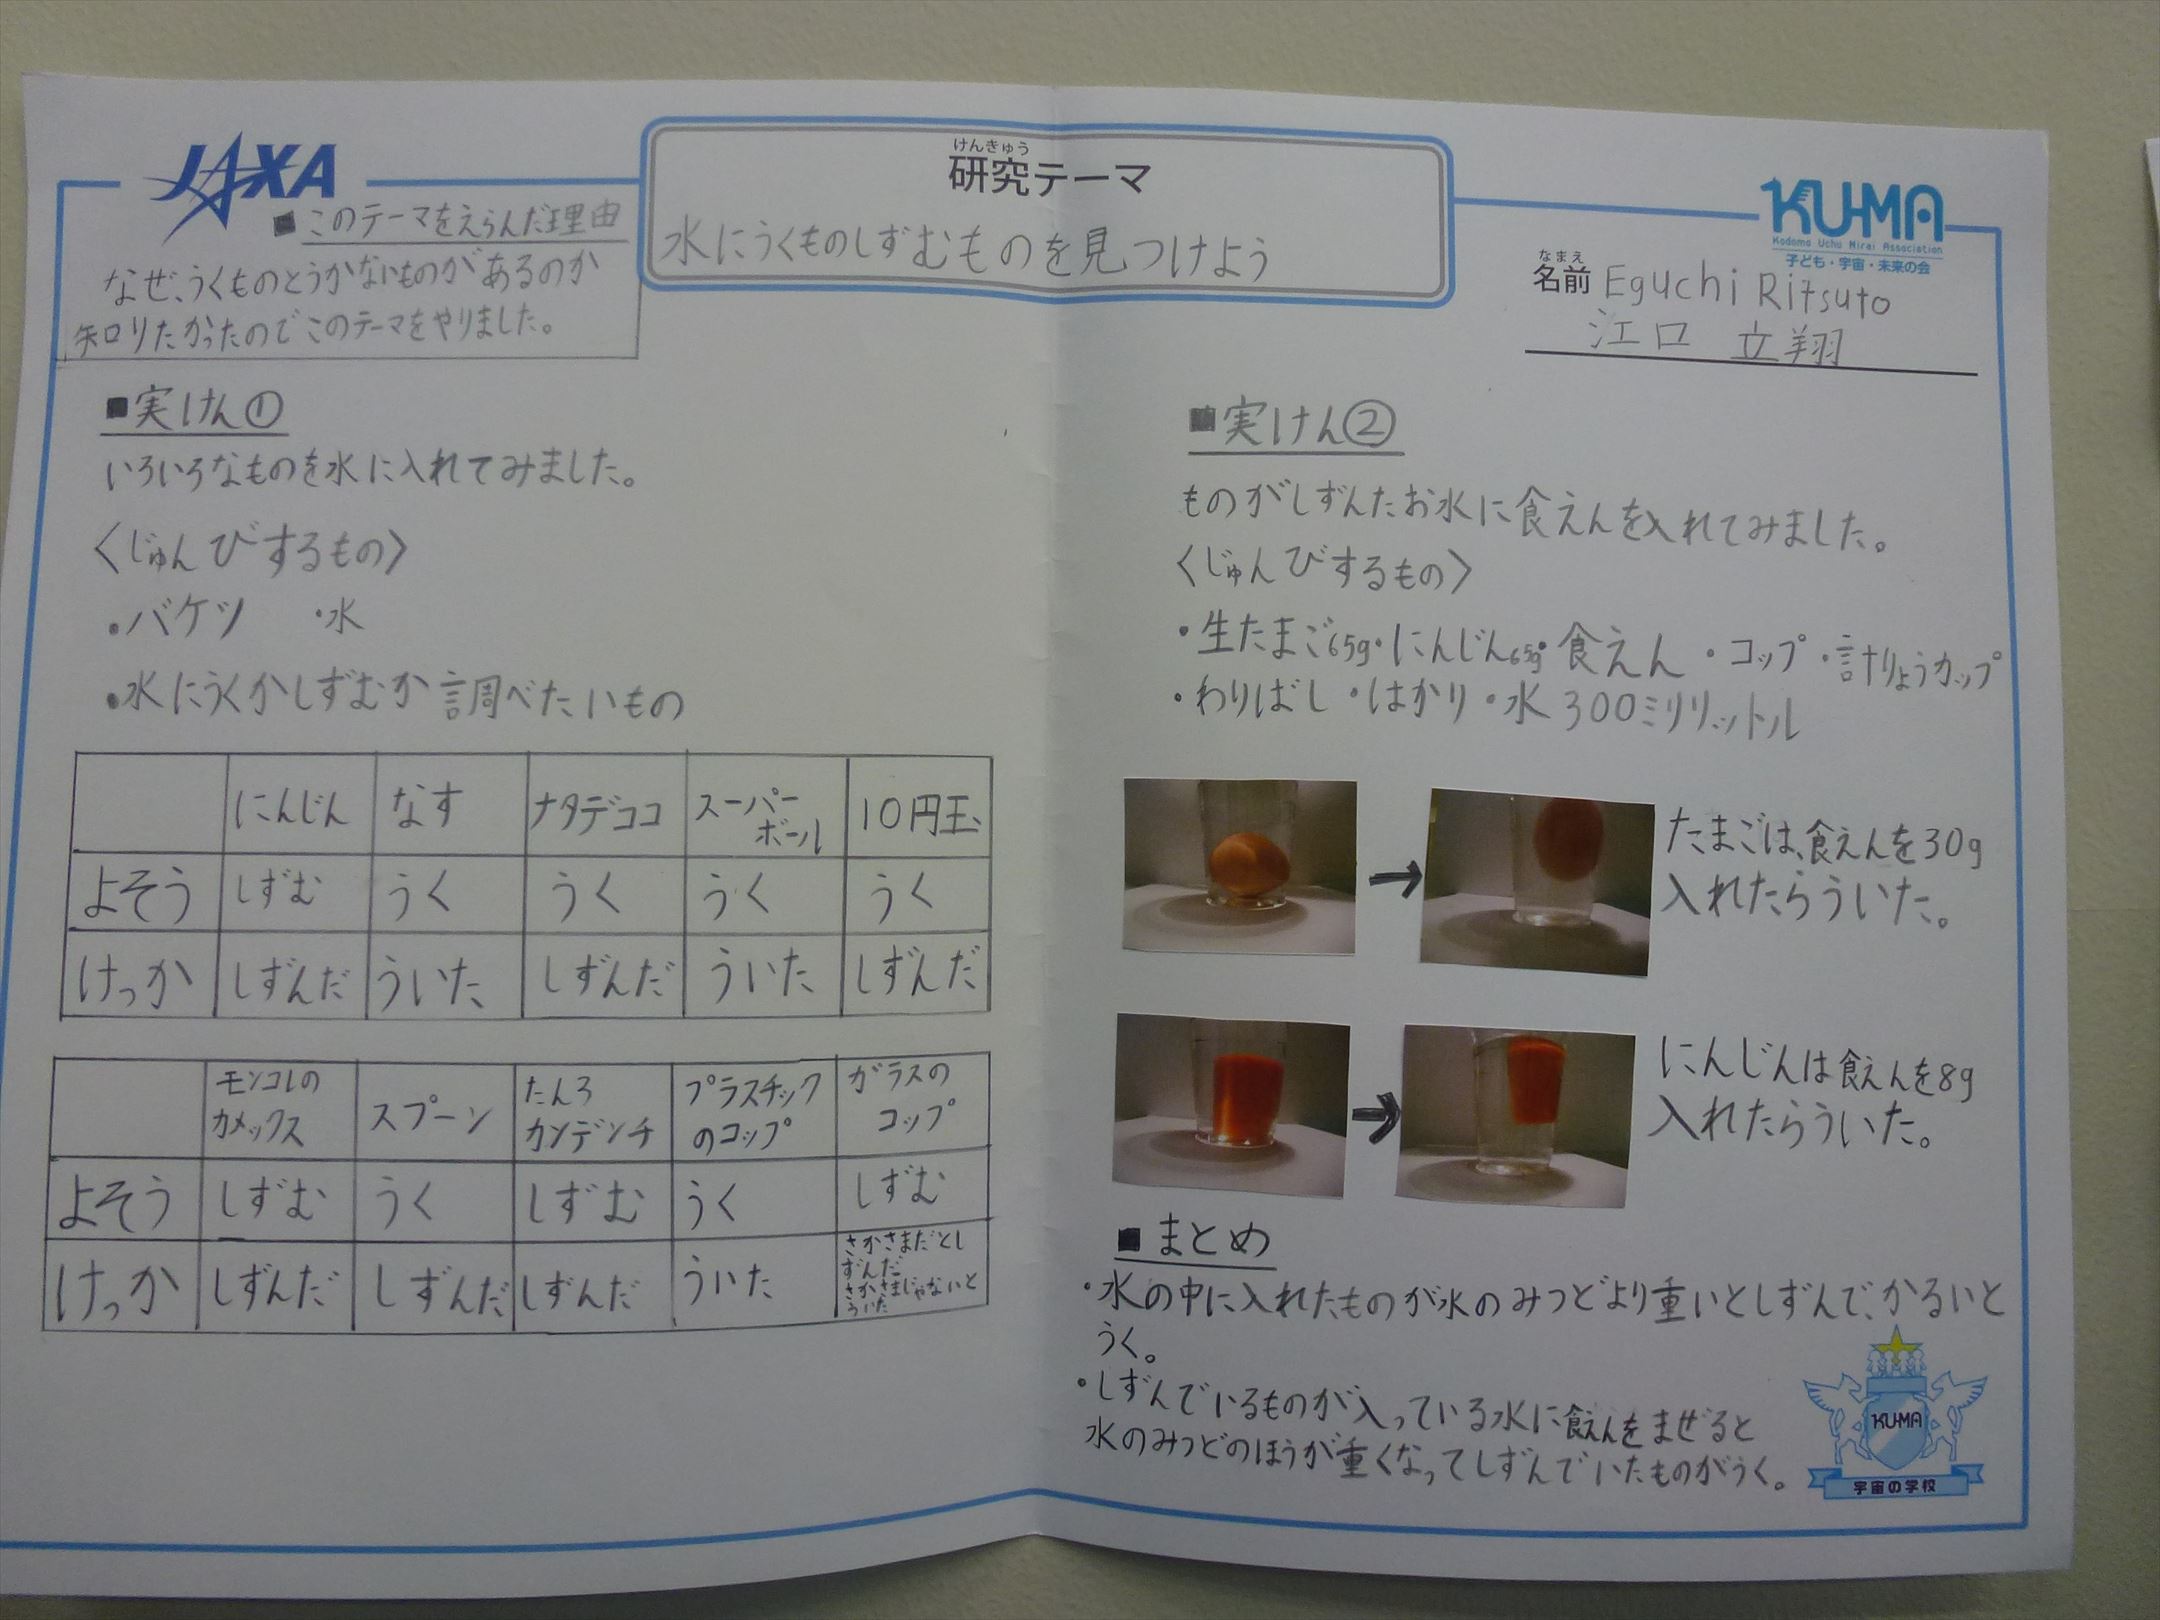 JAXA
けんきゅう
研究テーマ
水にうくものしずむものを見つけよう
KU-MA
Kodomo Uchu Mirai Association
子ども・宇宙・未来の会
なまえ
名前 Eguchi Ritsuto
江口 立翔
■このテーマをえらんだ理由
なぜ、うくものとうかないものがあるのか
知りたかったのでこのテーマをやりました。
■実けん①
いろいろなものを水に入れてみました。
〈じゅんびするもの〉
・バケツ ・水
・水にうくかしずむか調べたいもの
にんじん なす ナタデココ スーパーボール 10円玉
よそう しずむ うく うく うく うく
けっか しずんだ ういた しずんだ ういた しずんだ
モンコレのカメックス スプーン たんろカンデンチ プラスチックのコップ ガラスのコップ
よそう しずむ うく しずむ うく しずむ
けっか しずんだ しずんだ しずんだ ういた さかさまだとしずんだ さかさまじゃないとういた
■実けん②
ものがしずんたお水に食えんを入れてみました。
〈じゅんびするもの〉
・生たまご65g・にんじん65g・食えん・コップ・計りょうカップ
・わりばし・はかり・水 300ミリリットル
たまごは、食えんを30g
入れたらういた。
にんじんは食えんを8g
入れたらういた。
■まとめ
・水の中に入れたものが水のみつどより重いとしずんで、かるいと
うく。
・しずんでいるものが入っている水に食えんをまぜると
水のみつどのほうが重くなってしずんでいたものがうく。
KU-MA
宇宙の学校